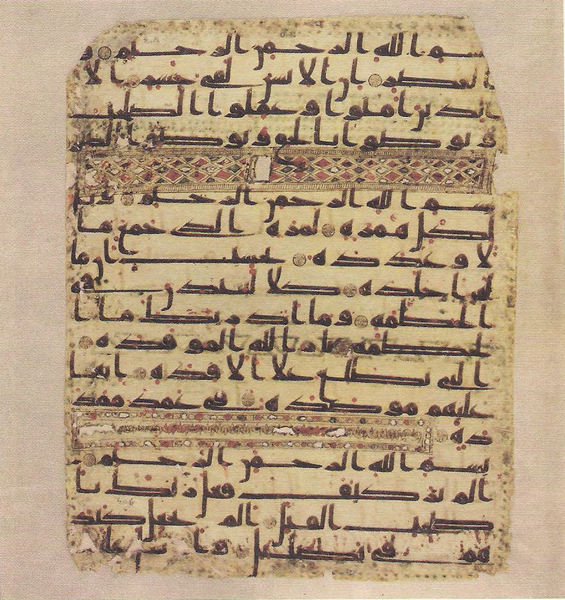 بسم الله الرحمن الرحيم و
العصر ان الانسن لفي خسر الا
الذين امنوا وعملوا الصلحت
و توصوا بالحق وتوصوا بالصبر
بسم الله الرحمن الرحيم ويل
لكل همزه لمزه الذي جمع ما
لا وعدده يحسب ان ما
له اخلده كلا لينبذن في
الحطمه وما ادريك ما ا
لحطمه نار الله الموقده
التي تطلع علا الافده انها
عليهم موصده في عمد ممد
ده
بسم الله الرحمن الرحيم
الم تر كيف فعل ربك با
صحب الفيل الم يجعل كيد
هم في تضليل وارسل